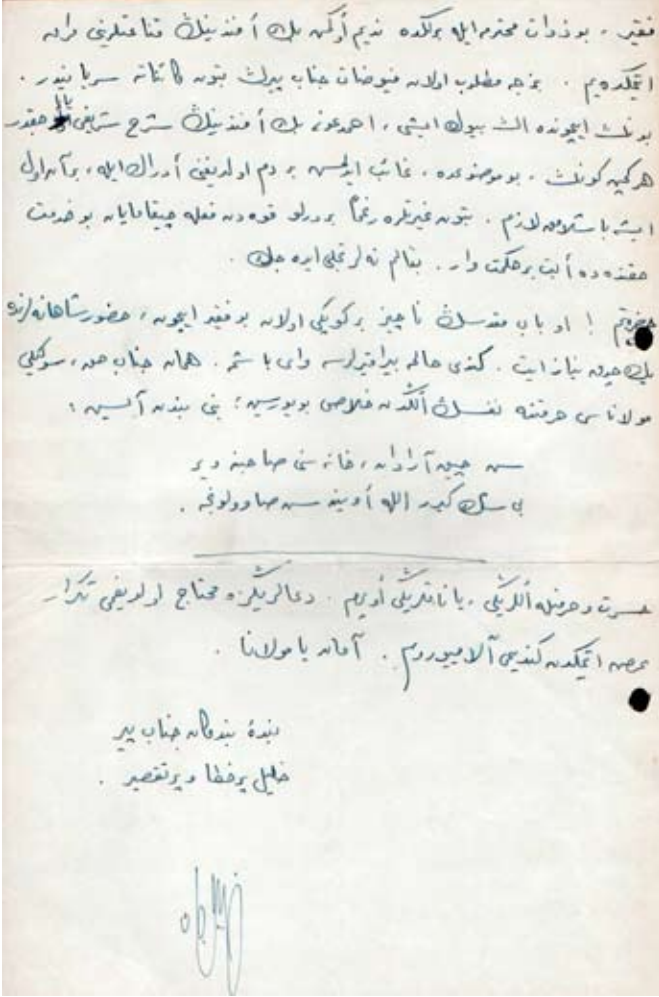 فقير ، بو ذوات محترمه ايله برلكده نديم أوكمن بك أفندينڭ قناعتلريني
ايتمكده‌يم . بزجه مطلوب اولان فيوضات جناب پيرڭ بتون كائناته سرياني‌در .
بونڭ ايچونده الڭ بيوك ايشى ، احمد عونى بك أفندينڭ شرح شريفى
هركيمڭ ، بو موضوعده ، غائب ايديلمش بر دم اولديغنى أدراك ايله ، بر آن اول
ايشه باشلامه لازم . بتون غيرتلره رغماً بر درلو قوه‌دن فعله چيقامايان بو خدمت
حقنده ده ألبت بر حكمت وار . بقالم نه‌لر تجلى ايده‌جك .
حضرتم ! او باب مقدسڭ ناچيز بر كوپكى اولان بو فقير ايچون ، حضور شاهانه‌لرنده
چوق نياز ايت . كندى حالمه بيراقيرلرسه واى باشمه . همان جناب حق ، سوكيلى
مولاناسى حرمتنه نفسڭ ألندن خلاص بويورسين ؛ بنى بندن آلسين :
سن چيق آرادان ، خانه‌سنى صاحبنه وير
بى شك كيرر الله أوينه سن صاوولونجه .
حسرت و حرمتله ألڭزى ، ياناقلريڭزى أوپرم . دعالريڭزه محتاج اولديغمى تكرار
عرض ايتمكدن كنديمى آلاميورم . آمان يا مولانا .
بندهٔ بندكان جناب پير
خليل پرخطا و پرتقصير .